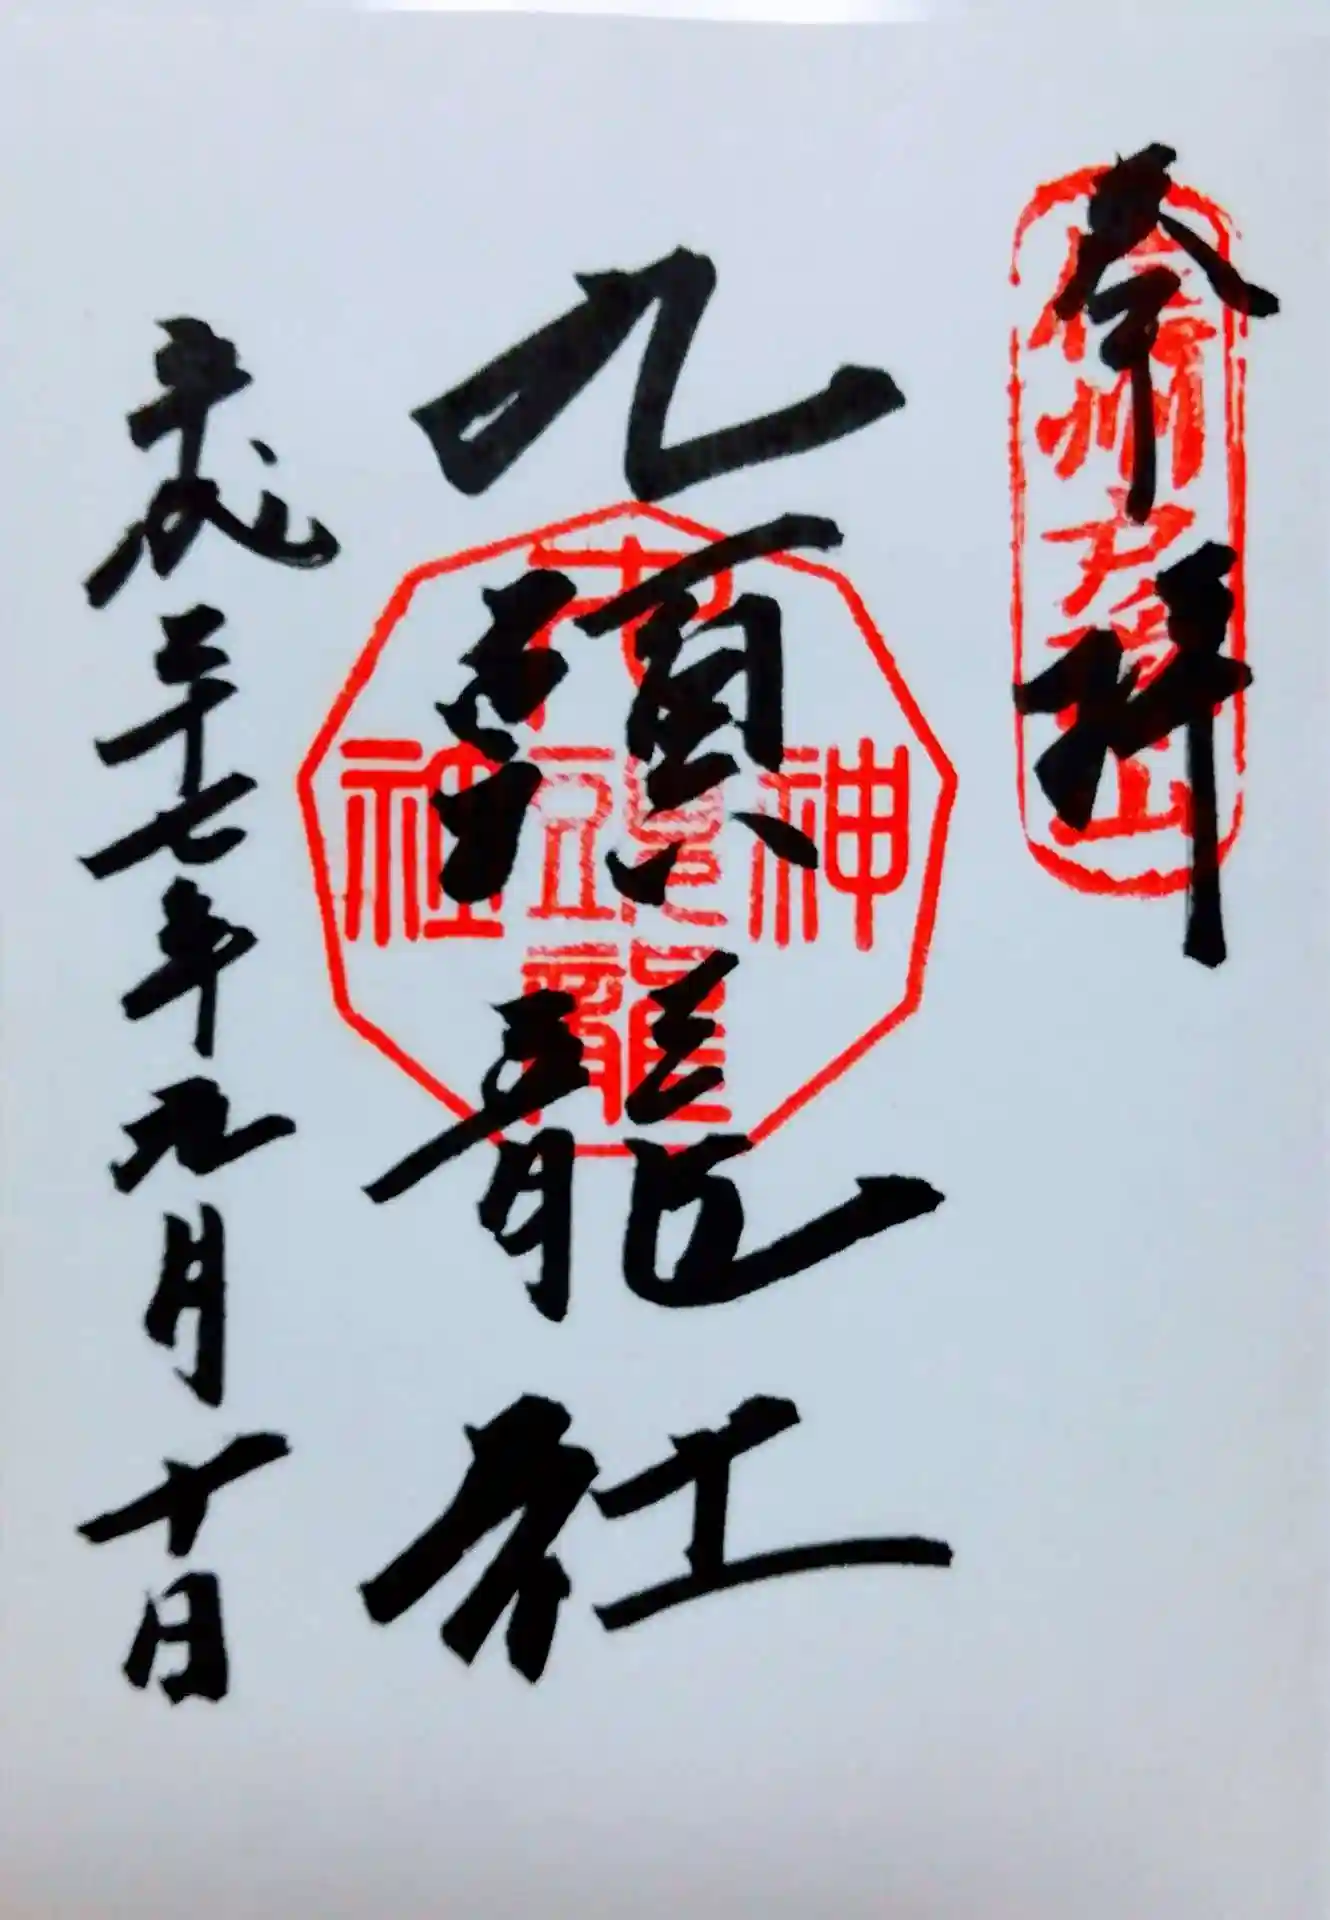 奉拝
信州戸隠山
九頭龍社
九頭龍神社
平成二十七年九月十日